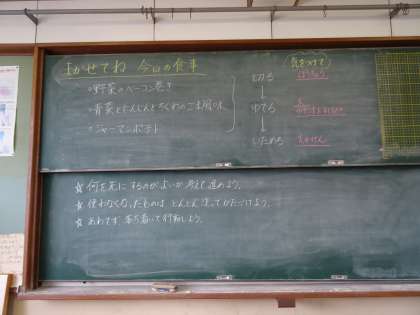 まかせてね 今日の食事
・野菜のベーコン巻き
・青菜とにんじんとちくわのごま風味
・ジャーマンポテト
(気をつけて)
切る
ほうちょう
↓
ゆでる
↓
いためる
☆何を先にするのがよいか考えて進めよう。
☆使わなくなったものは どんどん洗ってかたづけよう。
☆あわてず 落ち着いて行動しよう。